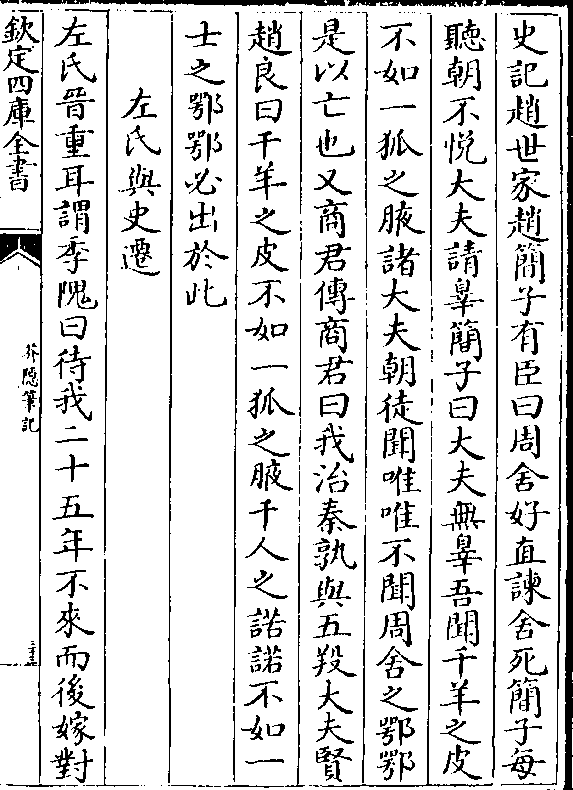 史記趙世家趙簡子有臣曰周舍好直諫舍死簡子每
聽朝不悦大夫請辠簡子曰大夫無辠吾聞千羊之皮
不如一狐之腋諸大夫朝徒聞唯唯不聞周舍之鄂鄂
是以亡也又商君傳商君曰我治秦孰與五羖大夫賢
趙良曰千羊之皮不如一狐之腋千人之諾諾不如一
士之鄂鄂必出於此
左氏與史遷
左氏晉重耳謂季隗曰待我二十五年不來而後嫁對
欽定四庫全書
芥隱筆記